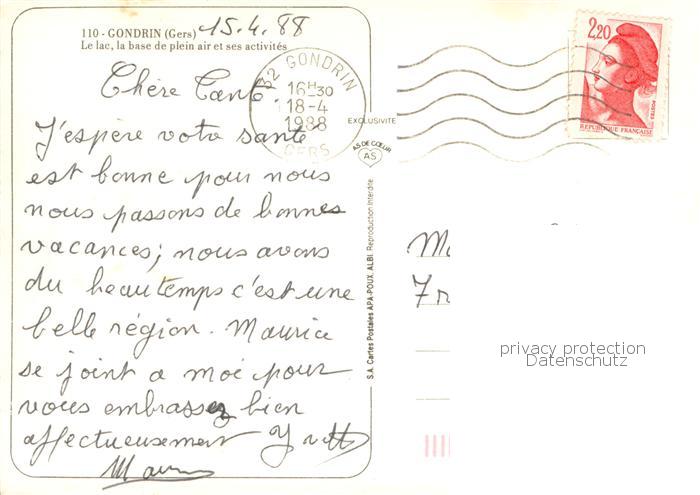 110 - GONDRIN (Gers) 15.4.88
Le lac, la base de plein air et ses activités
Chère Tante
J'espère votre santé
est bonne pour nous
nous passons de bonnes
vacances; nous avons
du beau temps c'est une
belle région. Maurice
se joint a moi pour
vous embrassez bien
affectueusement Yvette
Maurice
32 GONDRIN
16H30
18-4
1988
GERS
EXCLUSIVITE
AS DE CŒUR
AS
S.A. Cartes Postales APA-POUX, ALBI. Reproduction Interdite
2,20
POSTES
REPUBLIQUE FRANÇAISE
privacy protection
Datenschutz